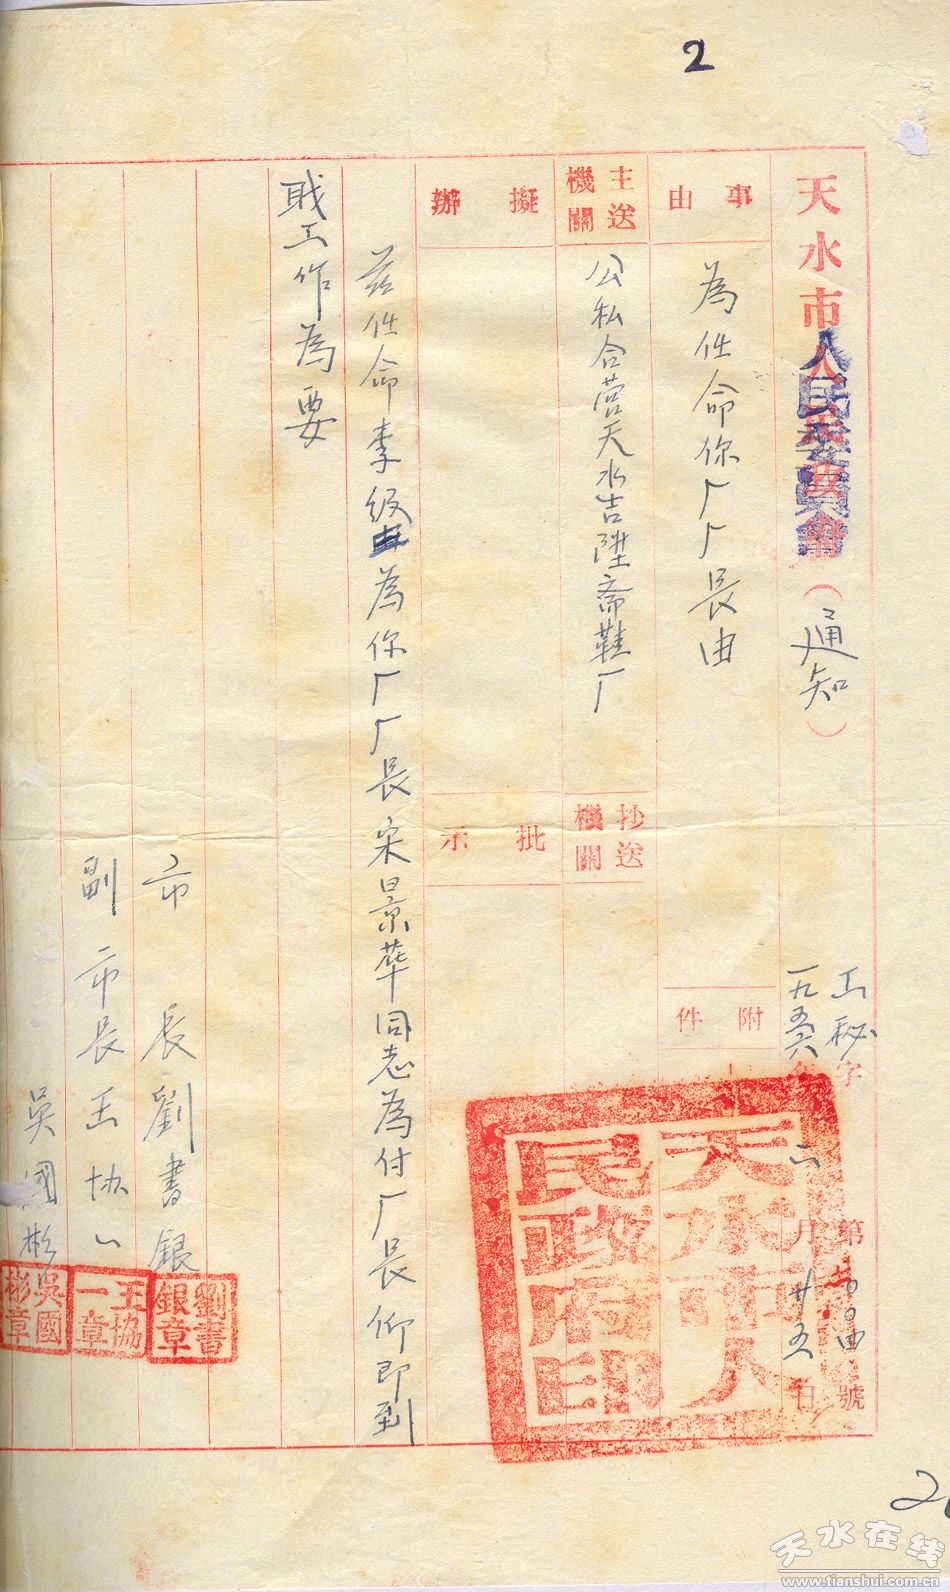 2
天水市人民委員會（通知）
工秘字第二〇〇四號
一九五六年二月廿五日
事由
為任命你厂厂長由
附件
主送機關
公私合营天水吉陞斋鞋厂
抄送機關
擬辦
批示
兹任命李级為你厂厂長宋景華同志為付厂長仰即到
职工作為要
市長劉書銀
劉書銀章
副市長王协一
王協一章
吳國彬
吳國彬章
天水市人民政府印
天水在线
www.tianshui.com.cn